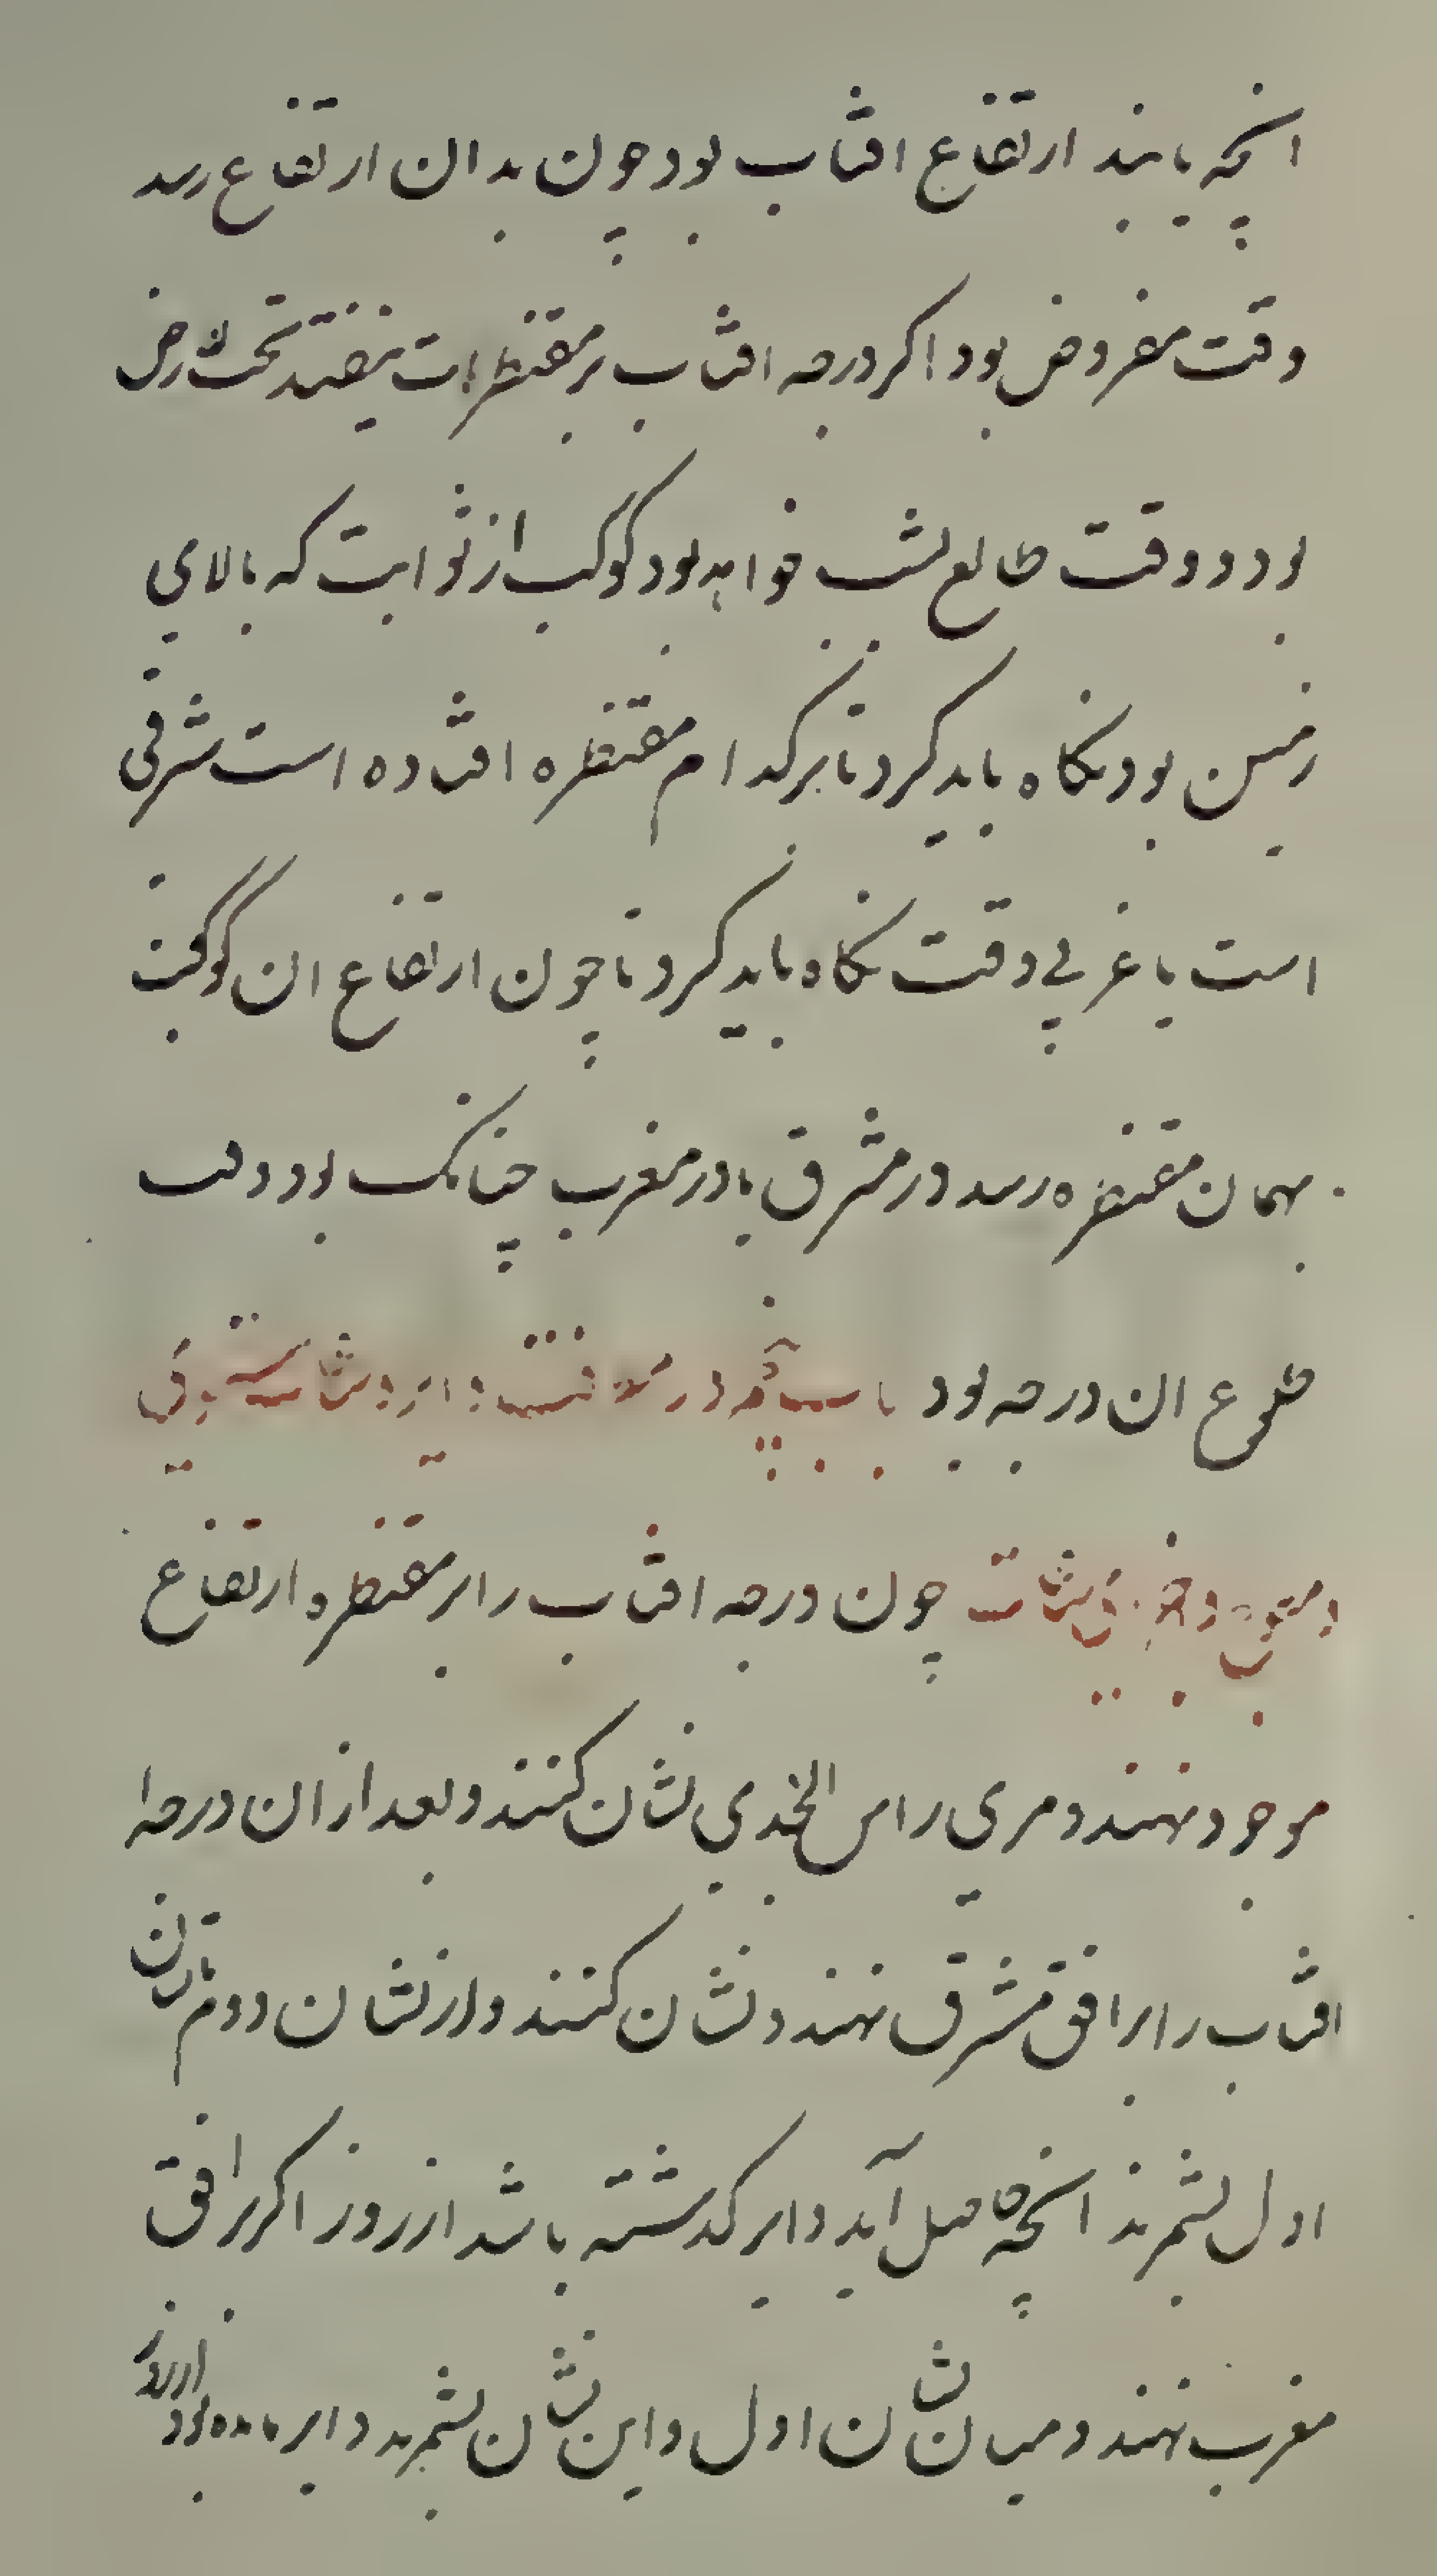 انچه یابند ارتفاع افتاب بود چون بدان ارتفاع رسد
وقت مفروض بود اکر درجه افتاب بر مقنطرات نیفتد تحت الارض
بود و وقت طالع شب خواهد بود کوکب از ثوابت که بالای
زمین بود نکاه باید کرد تا بر کدام مقنطره افتاده است شرقی
است یا غربی وقت نکاه باید کرد تا چون ارتفاع ان کوکب
بهمان مقنطره رسد در مشرق یا در مغرب چنانک بود وقت
طلوع ان درجه بود باب پنجم در معرفت دایر و ساعات مستوی
چون درجه افتاب را بر مقنطره ارتفاع
موجود نهند و مری راس الجدی نشان کنند و بعد از ان درجه ا
افتاب را بر افق مشرق نهند و نشان کنند و از نشان دوم تا نشان
اول بشمرند انچه حاصل آید دایر کذشته باشد از روز اکر بر افق
مغرب نهند و میان نشان اول و این نشان بشمرند دایر مانده بود از روز